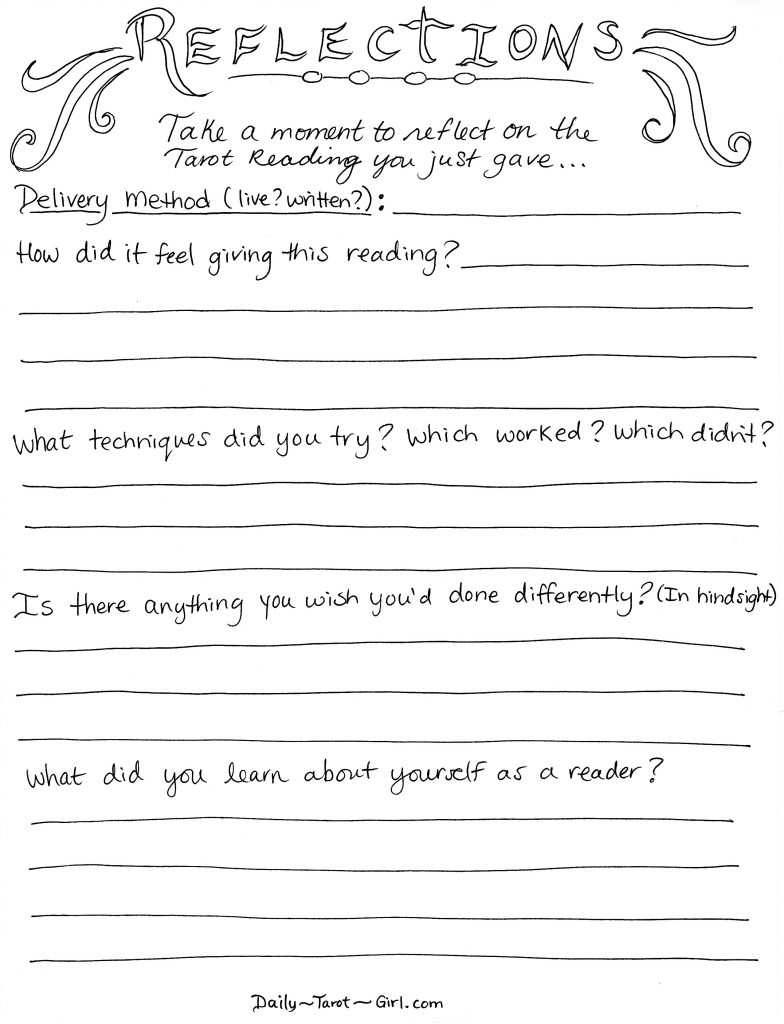 REFLECTIONS
Take a moment to reflect on the
Tarot Reading you just gave...
Delivery method (live? written?):
How did it feel giving this reading?
What techniques did you try? Which worked? Which didn't?
Is there anything you wish you'd done differently? (In hindsight)
What did you learn about yourself as a reader?
Daily~Tarot~Girl.com